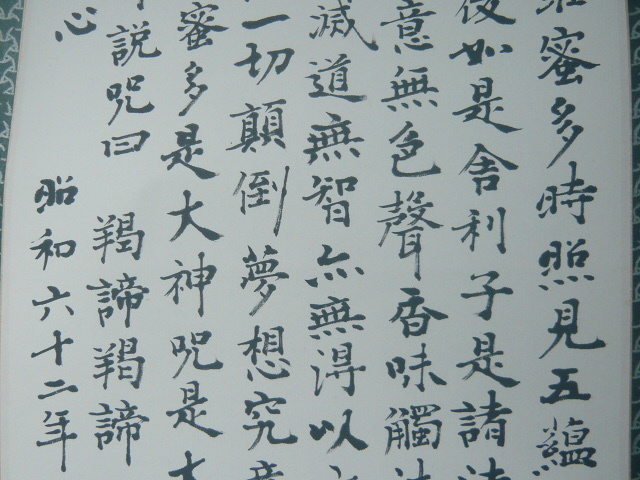 蜜多時照見五蘊
如是舍利子是諸
意無色聲香味觸
滅道無智亦無得以
一切顛倒夢想究
蜜多是大神咒是大
說咒曰 羯諦羯諦
心 昭和六十二年